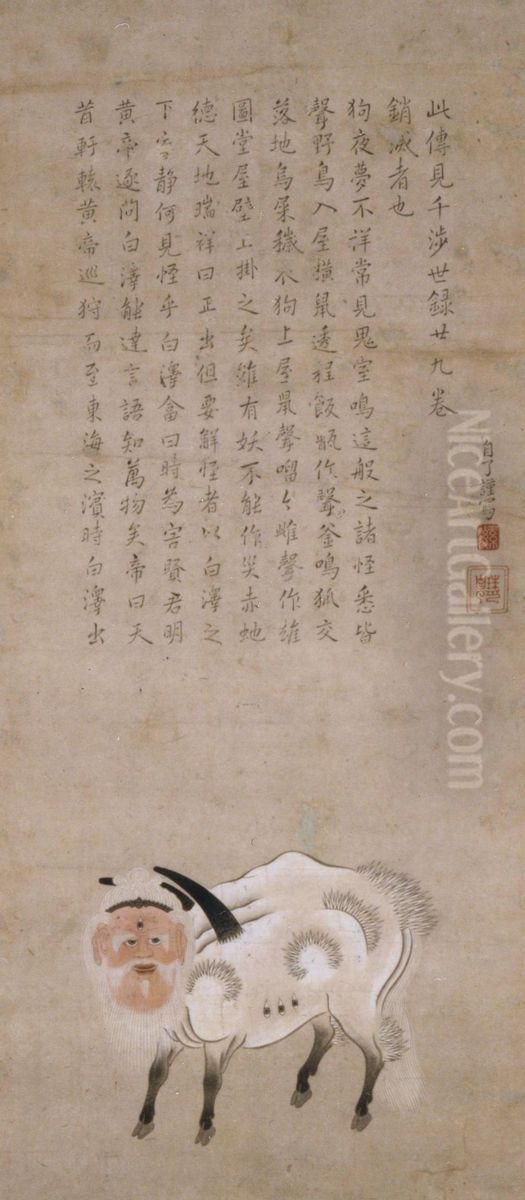 昔軒轅黃帝巡狩而至東海之濱時白澤出
黃帝遂問白澤能達言語知萬物矣帝曰天
下寧静何見怪乎白澤畣曰時為害賢君明
德天地瑞祥曰正出但要解怪者以白澤之
圖堂屋壁上掛之矣雖有妖不能作災赤虵
落地鳥屎穢衣狗上屋鼠聲々雌聲作雄
聲野鳥入屋橫鼠透程飯甑作聲釜鳴狐交
狗夜夢不洋常見鬼室鳴這般之諸怪悉皆
銷滅者也
此傳見千渉世録廿九卷
自了謹
NiceArtGallery.com